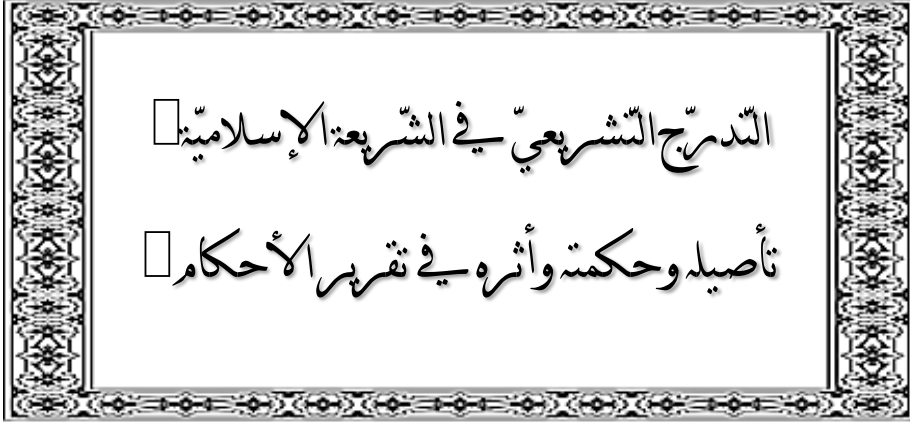 التّدرّج التّشريعيّ في الشّريعة الإسلاميّة
تأصيله وحكمته وأثره في تقرير الأحكام